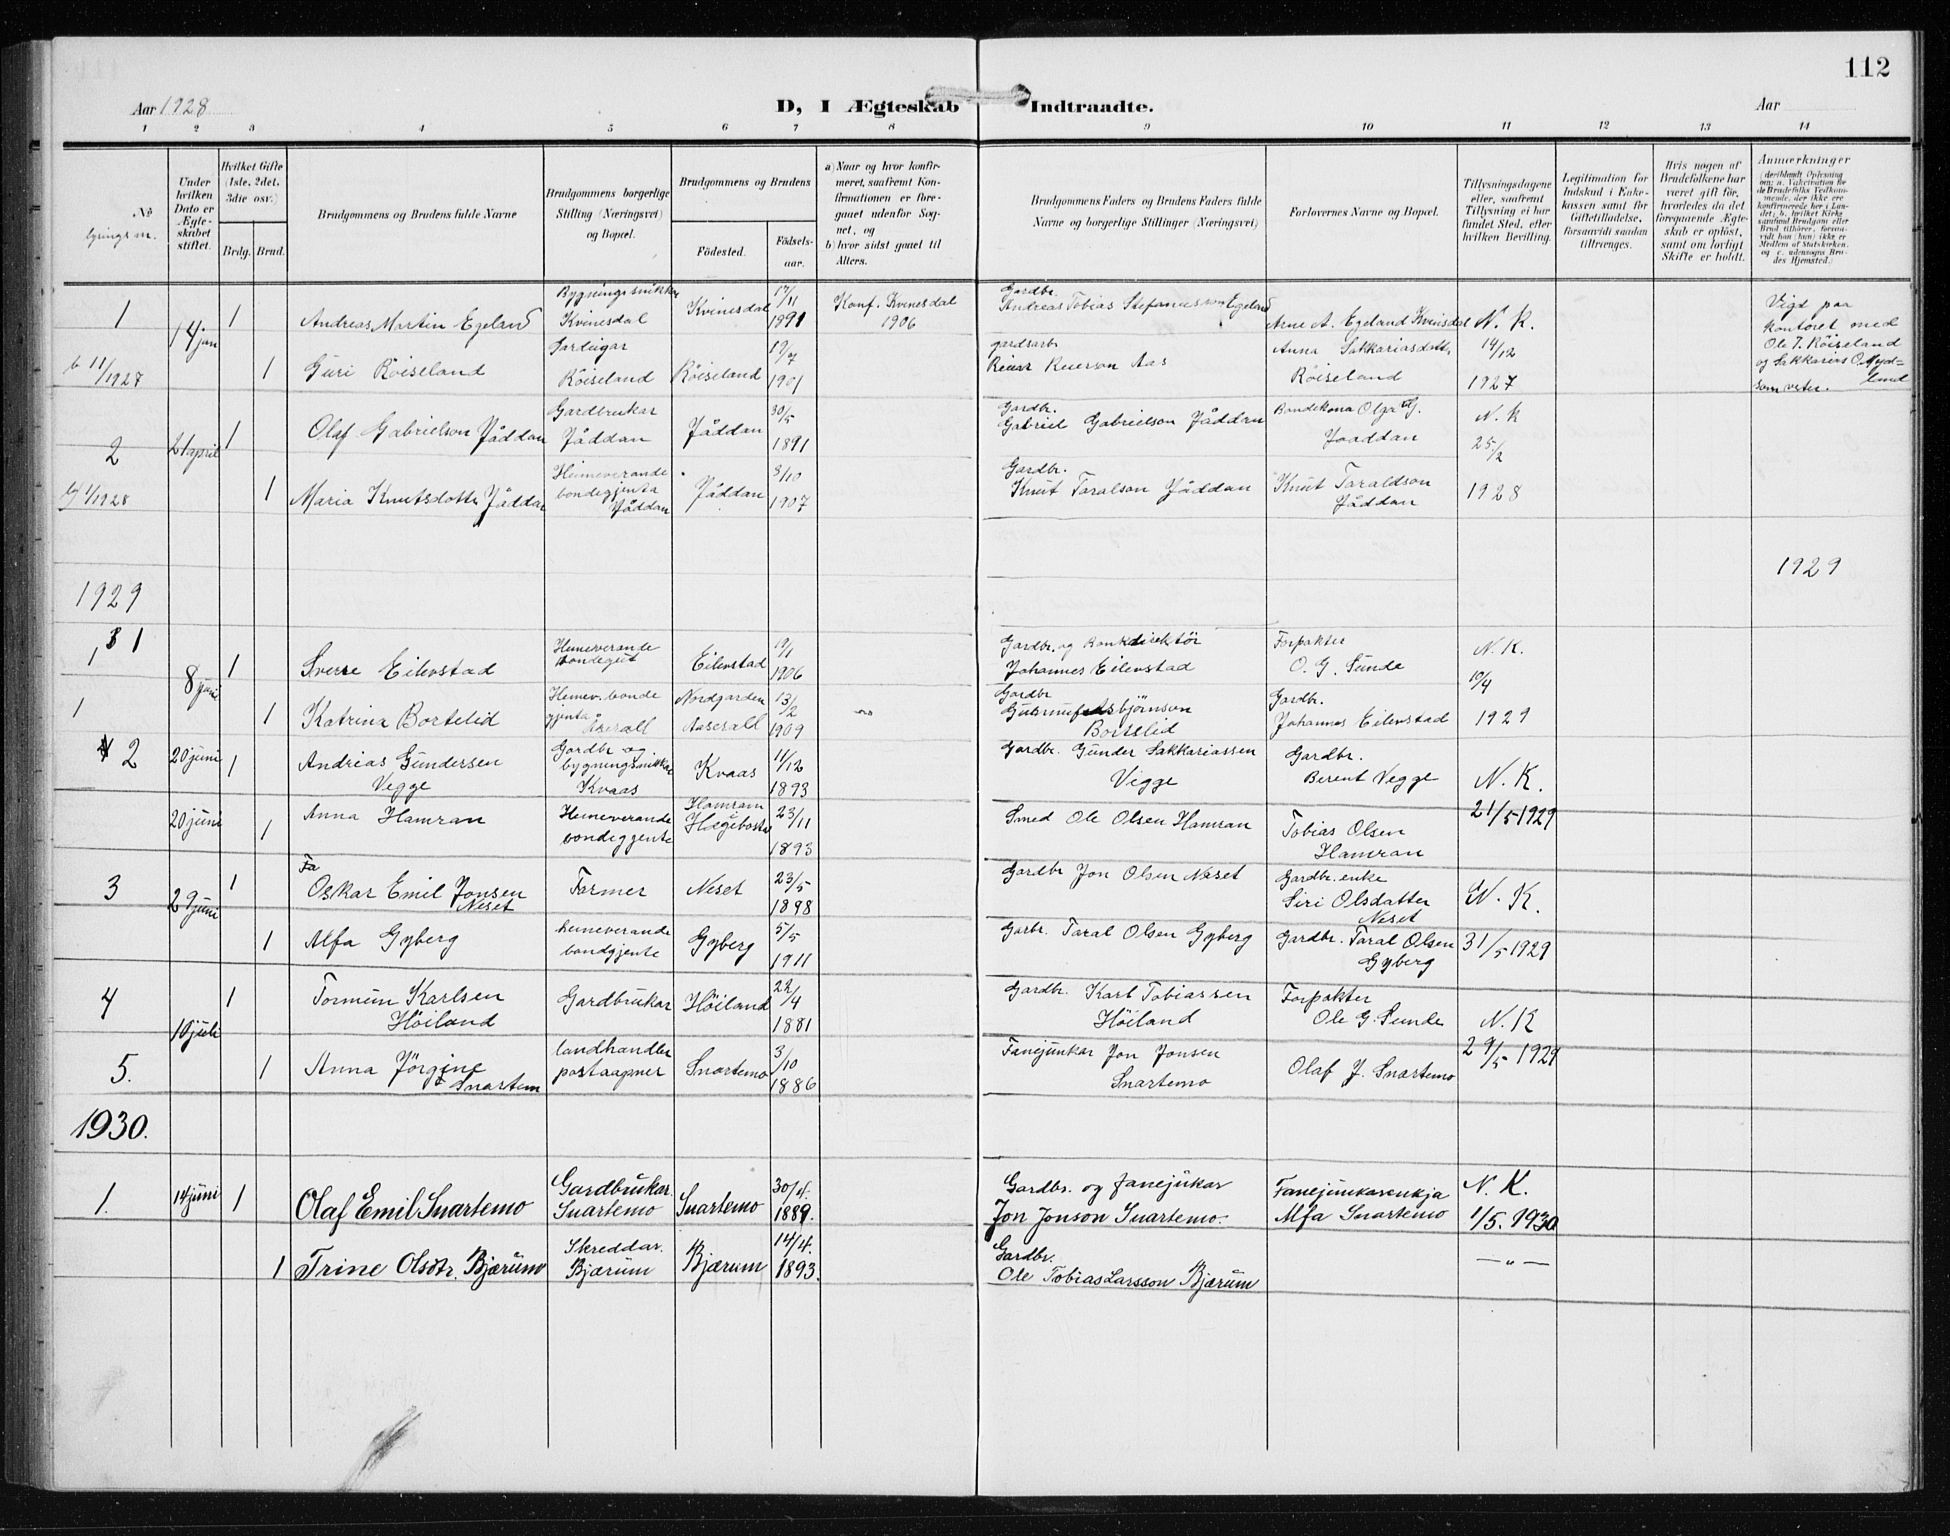 112
Aar 1928
D, I Ægteskab Indtraadte.
Aar
1 2 3 4 5 6 7 8 9 10 11 12 13 14
No
lysings nr.
Under hvilken Dato er Ægteskabet stiftet.
Hvilket Gifte (1ste, 2det, 3die osv.)
Brdg. Brud.
Brudgommens og Brudens fulde Navne
Brudgommens borgerlige Stilling (Næringsvei) og Bopæl.
Brudgommens og Brudens
Födested.
Födselsaar.
a) Naar og hvor konfirmeret, saafremt Konfirmationen er foregaaet udenfor Sognet, og
b) hvor sidst gaaet til Alters.
Brudgommens Faders og Brudens Faders fulde Navne og borgerlige Stillinger (Næringsvei)
Forlovernes Navne og Bopæl.
Tillysningsdagene eller, saafremt Tillysning ei har fundet Sted, efter hvilken Bevilling.
Legitimation for Indskud i Enkekassen samt for Giftetilladelse, forsaavidt saadan tiltrænges.
Hvis nogen af Brudefolkene har været gift för, hvorledes da det foregaaende Ægteskab er oplöst, samt om lovligt Skifte er holdt.
Anmerkninger
(deriblandt Oplysning om: a. Vakcination for de Brudefolks Vedkommende, der ikke ere konfirmerede her i Landet; b. hvilket Kirkesamfund Brudgom eller Brud tilhører, forsaavidt han (hun) ikke er Medlem af Statskirken, og c. udensogns Brudes Hjemsted.)
1
14 jan
1
Andreas Martin Egeland
Bygningssnikkar
Kvinesdal
Kvinesdal
17/11
1891
Konf. Kvinesdal
1906
Gardbr.
Andreas Tobias Stefanusson Egeland
Arne A. Egeland Kvinesdal
N. K.
Vigt paa
kontoret med
Ole T. Röiseland
og Sakkarias O.
som veter.
11/1927
1
Guri Röiseland
Röiseland
Röiseland
19/7
1901
gardarb.
Reiar Reierson Aas
Anna Sakkariasdotter
Röiseland
14/12
1927
2
21 april
1
Olaf Gabrielson Jåddan
Gardbrukar
Jåddan
Jåddan
30/5
1891
Gardbr.
Gabriel Gabrielson Jåddan
Bondekona Olga G.
Joaddan
N. K
25/2
1/1928
1
Maria Knutsdotter Jåddan
Heimeverande
bondegjenta
Jåddan
Jåddan
3/10
1907
Gardbr.
Knut Taralson Jåddan
Knut Taraldson
Jåddan
1928
1929
1929
1
8 juni
1
Sverre Eilevstad
Heimeverande
bondegut
Eilevstad
9/1
1906
Gardbr. og Bankdirektör
Johannes Eilevstad
Forpakter
O. G. Sunde
N. K.
10/4
1
1
Katrina Bortelid
Heimev. bonde
gjenta
Åserall
Nordgarden
Aaserall
13/2
1909
Gardbr
Asbjörnson
Bortelid
Gardbr.
Johannes Eilevstad
1929
2
20 juni
1
Andrias Gundersen
Vegge
Gardbr og
bygningssnikkar
Kvaas
Kvaas
11/12
1893
Gardbr. Gunder Sakkariassen
Vigge
Gardbr.
Berent Vegge
N. K.
20 juni
1
Anna Hamran
Heimeverande
bondeggjente
Hamram
Hægebostad
23/11
1893
Smed Ole Olsen Hamran
Tobias Olsen
Hamran
21/5 1929
3
29 juni
1
Fa
Oskar Emil Jonsen
Neset
Farmer
Neset
23/5
1898
Gardbr Jon Olsen Neset
Gardbr. enke
Siri Olsdatter
Neset
N. K.
1
Alfa Gyberg
heimeverande
bondgjente
Gyberg
5/5
1911
Garbr. Taral Olsen Gyberg
Gardbr. Taral Olsen
Gyberg
31/5 1929
4
10 juli
1
Tormun Karlsen
Höiland
Gardbrukar
Höiland
22/4
1881
Gardbr. Karl Tobiassen
Höiland
Forpakter
Ole G. Sunde
N. K
5.
1
Anna Jörgine
Snartem
landhandler
postaapner
Snartemo
3/10
1886
Fanejunkar Jon Jonsen
Snartemo
Olaf J. Snartemo
29/5 1929
1930.
1.
14 juni
1
Olaf Emil Snartemo
Gardbrukar.
Snartemo
Snartemo
30/4.
1889.
Gardbr. og fanejukar
Jon Jonson Snartemo.
Fanejunkarenkja
Alfa Snartemo
N. K.
1/5. 1930
1
Trine Olsdtr. Bjærum
Skreddar.
Bjærum
Bjærum
14/4.
1893.
Gardbr.
Ole Tobias Larsson Bjærum
— „ —